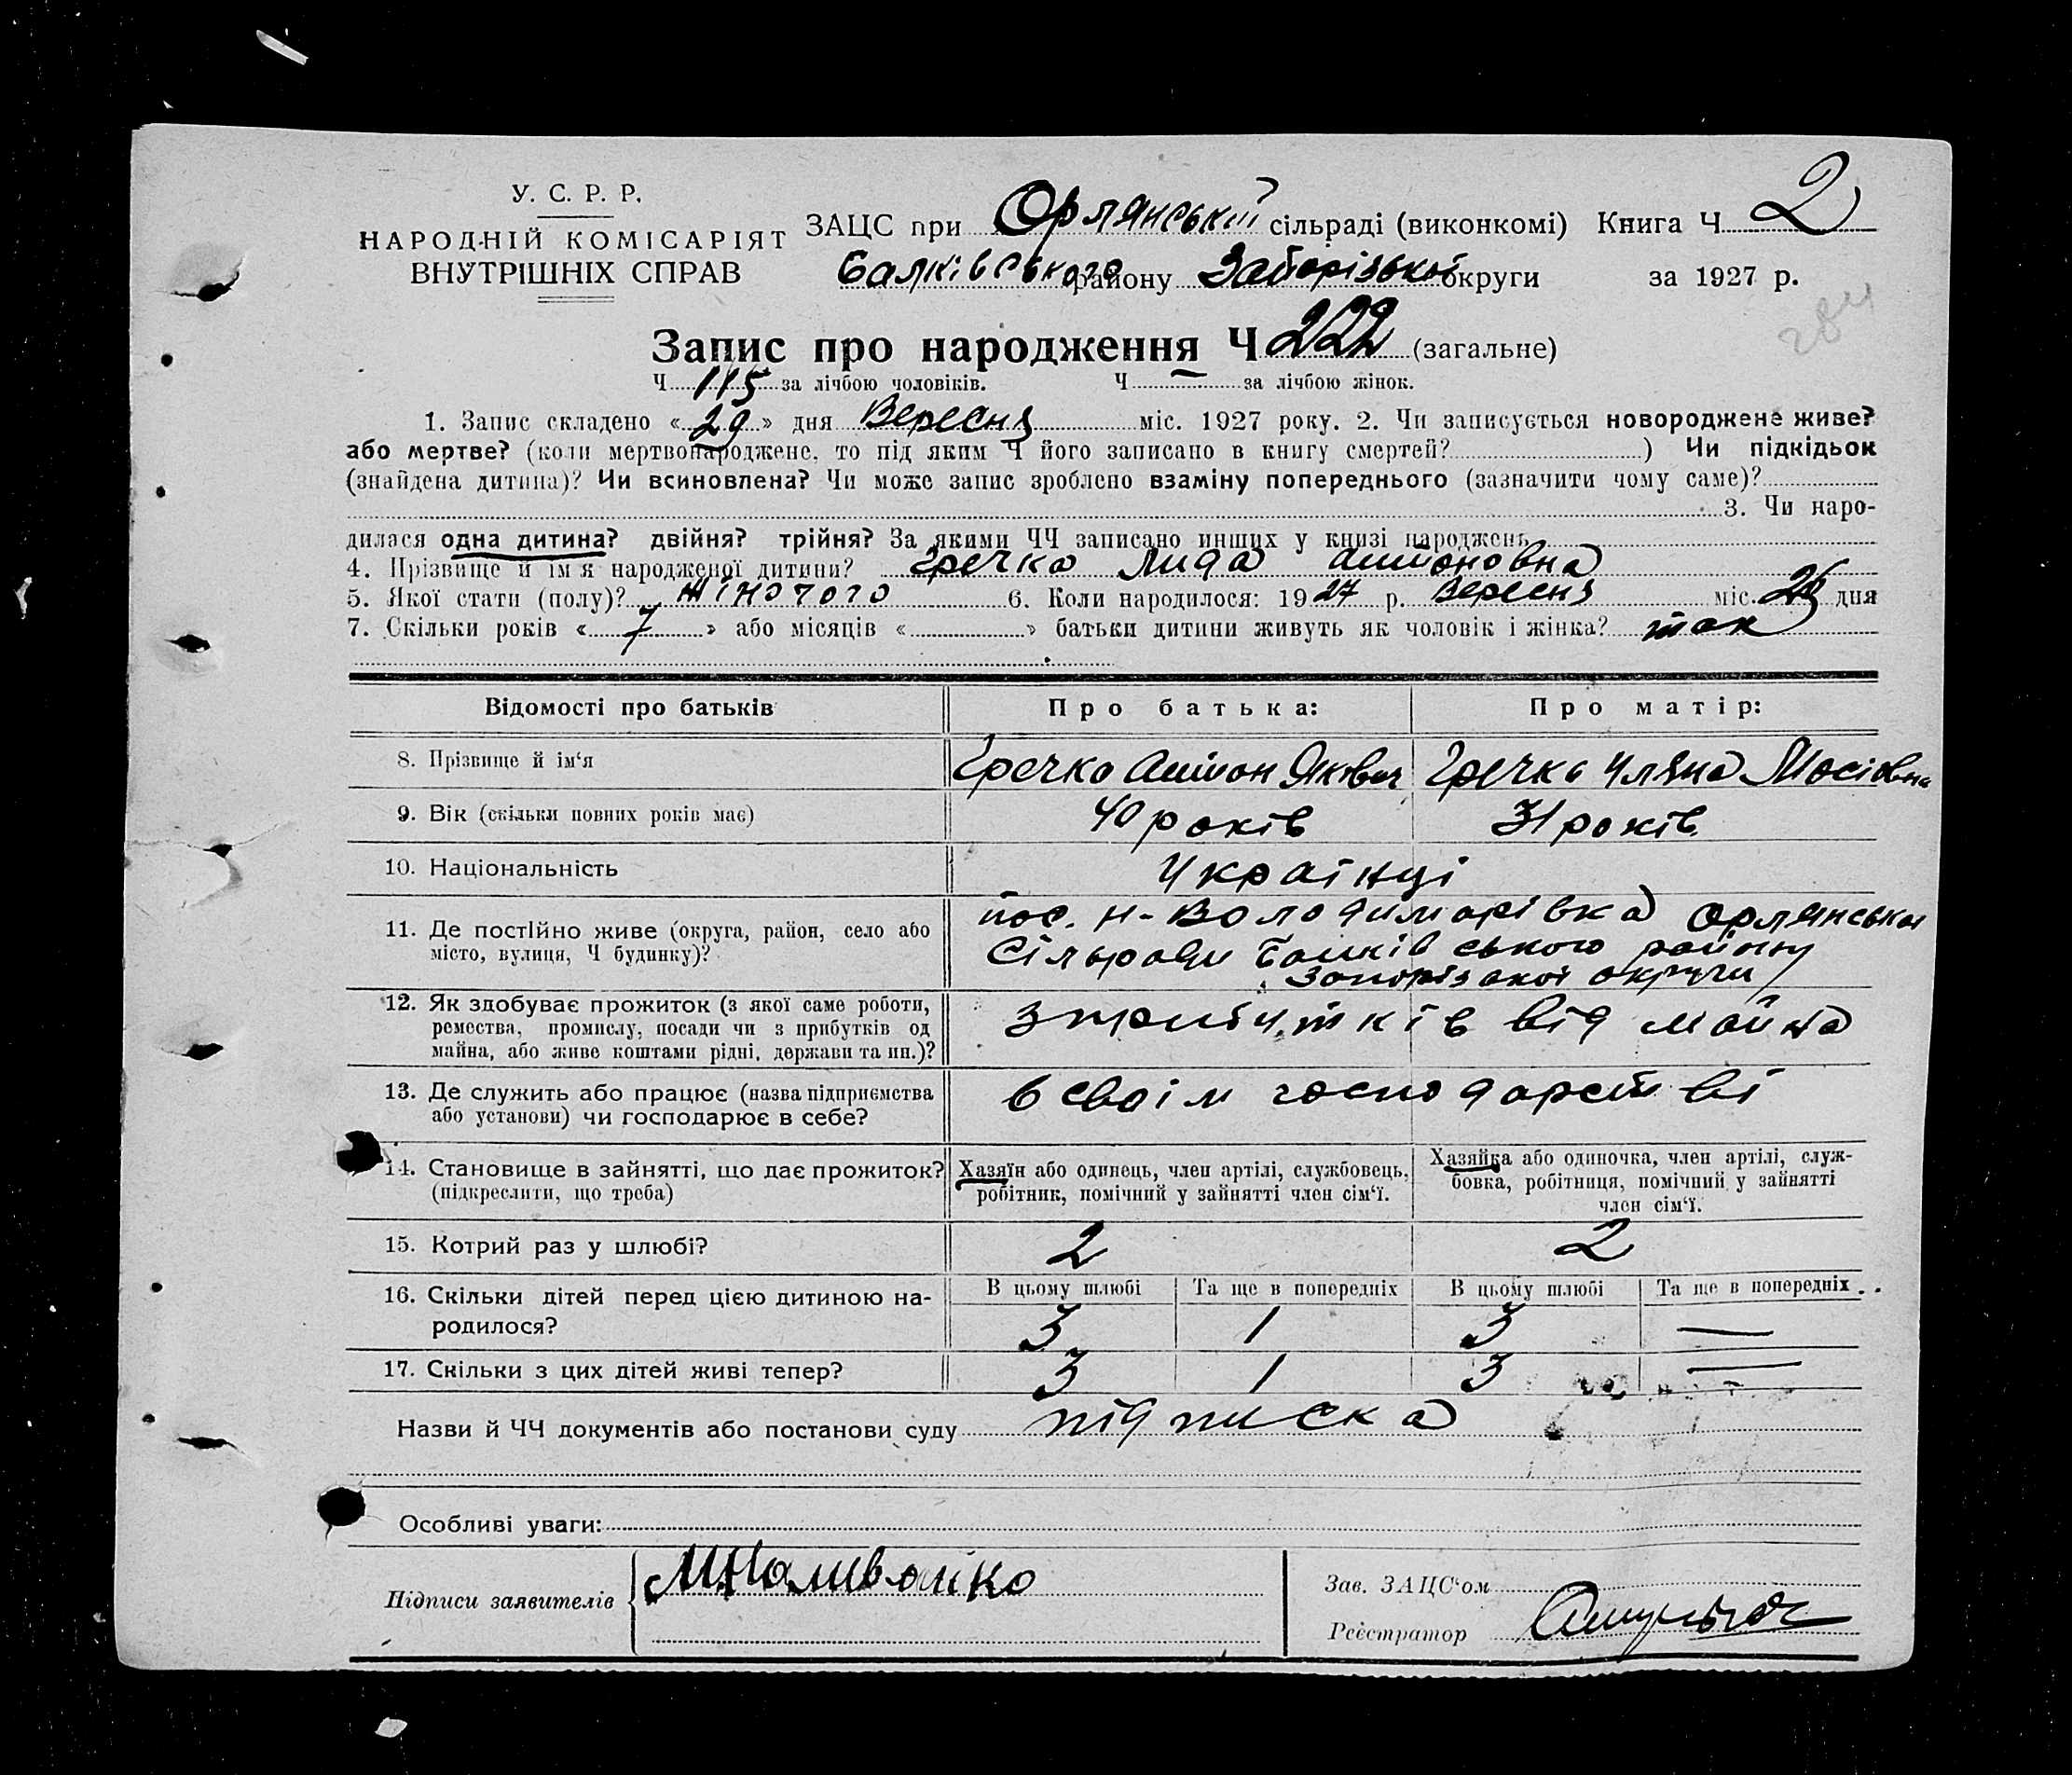 У. С. Р. Р.
НАРОДНІЙ КОМІСАРІЯТ
ВНУТРІШНІХ СПРАВ
ЗАЦС при Орлянській сільраді (виконкомі) Книга Ч 2
Балківського району Запорізької округи за 1927 р.
284
Запис про народження Ч 222 (загальне)
Ч 115 за лічбою чоловіків. Ч — за лічбою жінок.
1. Запис складено «29» дня Вересня міс. 1927 року. 2. Чи записується новороджене живе?
або мертве? (коли мертвонароджене, то під яким Ч його записано в книгу смертей? ) Чи підкідьок
(знайдена дитина)? Чи всиновлена? Чи може запис зроблено взаміну попереднього (зазначити чому саме)?
3. Чи наро-
дилася одна дитина? двійня? трійня? За якими ЧЧ записано инших у книзі народжень
4. Прізвище й ім'я народженої дитини? Гречка Лида Антоновна
5. Якої стати (полу)? Жіночого 6. Коли народилося: 1927 р. Вересня міс. дня
7. Скільки років «7» або місяців « » батьки дитини живуть як чоловік і жінка? так
Відомості про батьків Про батька: Про матір:
8. Прізвище й ім'я Гречка Антон Якович Гречка Уляна Мосіовна
9. Вік (скільки повних років має) 40 років 31 років
10. Національність Українці
11. Де постійно живе (округа, район, село або
місто, вулиця, Ч будинку)?
пос. Н-Володимирівка Орлянськи
Сільради Балківського району
Запорізскої округи
12. Як здобуває прожиток (з якої саме роботи,
ремества, промислу, посади чи з прибутків од
майна, або живе коштами рідні, держави та ин.)?
з прибутків від майна
13. Де служить або працює (назва підприємства
або установи) чи господарює в себе?
в своїм господарстві
14. Становище в зайнятті, що дає прожиток?
(підкреслити, що треба)
Хазяїн або одинець, член артілі, службовець,
робітник, помічний у зайнятті член сім'ї.
Хазяйка або одиночка, член артілі, служ-
бовка, робітниця, помічний у зайнятті
член сім'ї.
15. Котрий раз у шлюбі? 2 2
16. Скільки дітей перед цією дитиною на-
родилося?
В цьому шлюбі Та ще в попередніх В цьому шлюбі Та ще в попередніх
3 1 3 —
17. Скільки з цих дітей живі тепер? 3 1 3 —
Назви й ЧЧ документів або постанови суду підписка
Особливі уваги:
Підписи заявителів М. Наливайко
Зав. ЗАЦС'ом
Реєстратор